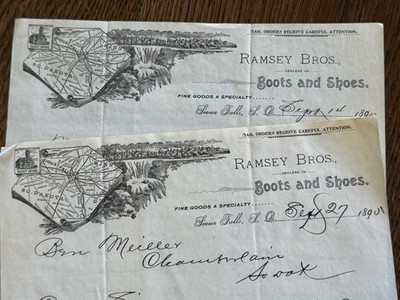 MAIL ORDERS RECEIVE CAREFUL ATTENTION.
RAMSEY BROS.,
DEALERS IN
Boots and Shoes.
FINE GOODS A SPECIALTY
Sioux Falls, S. D. Sept 14
SO. DAKOTA
MAIL ORDERS RECEIVE CAREFUL ATTENTION.
RAMSEY BROS.,
DEALERS IN
Boots and Shoes.
SO. DAKOTA
FINE GOODS A SPECIALTY
Sioux Falls, S. D. Sept 27
Ben Meiller
Chamberlain
So Dak